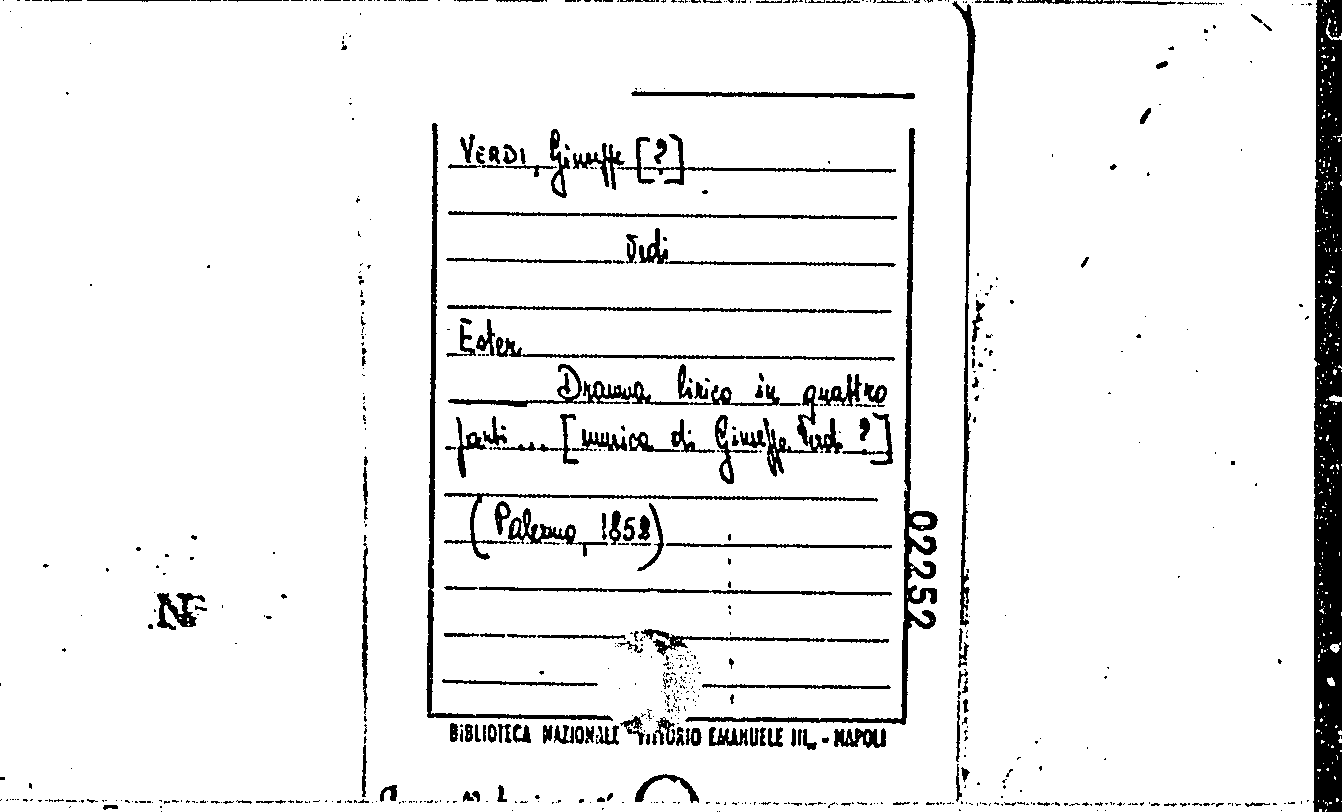 VERDI, Giuseppe [?]
Vedi
Ester
Dramma lirico in quattro
parti... [musica di Giuseppe Verdi ?]
(Palermo, 1852)
02252
BIBLIOTECA NAZIONALE VITTORIO EMANUELE III - NAPOLI